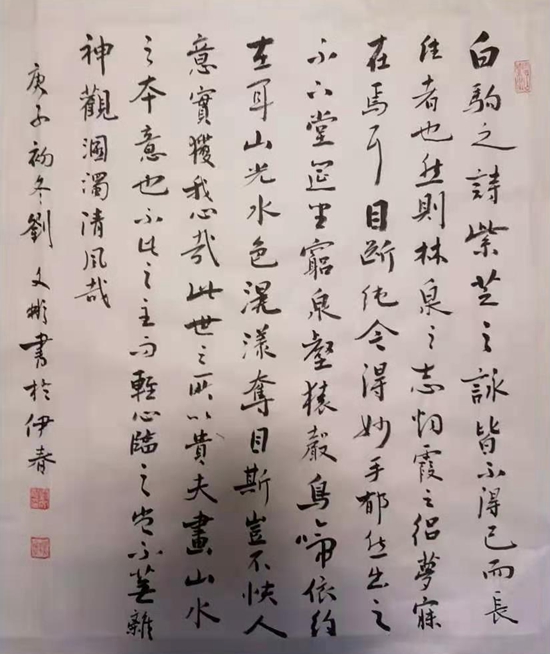 白駒之詩紫芝之詠皆不得已而長
往者也然則林泉之志烟霞之侶夢寐
在焉耳目斷絶今得妙手郁然出之
不下堂筵坐窮泉壑猿聲鳥啼依約
在耳山光水色滉漾奪目斯豈不快人
意實獲我心哉此世之所以貴夫畫山水
之本意也不此之主而輕心臨之豈不蕪雜
神觀溷濁清風哉
庚子初冬劉文彬書於伊春